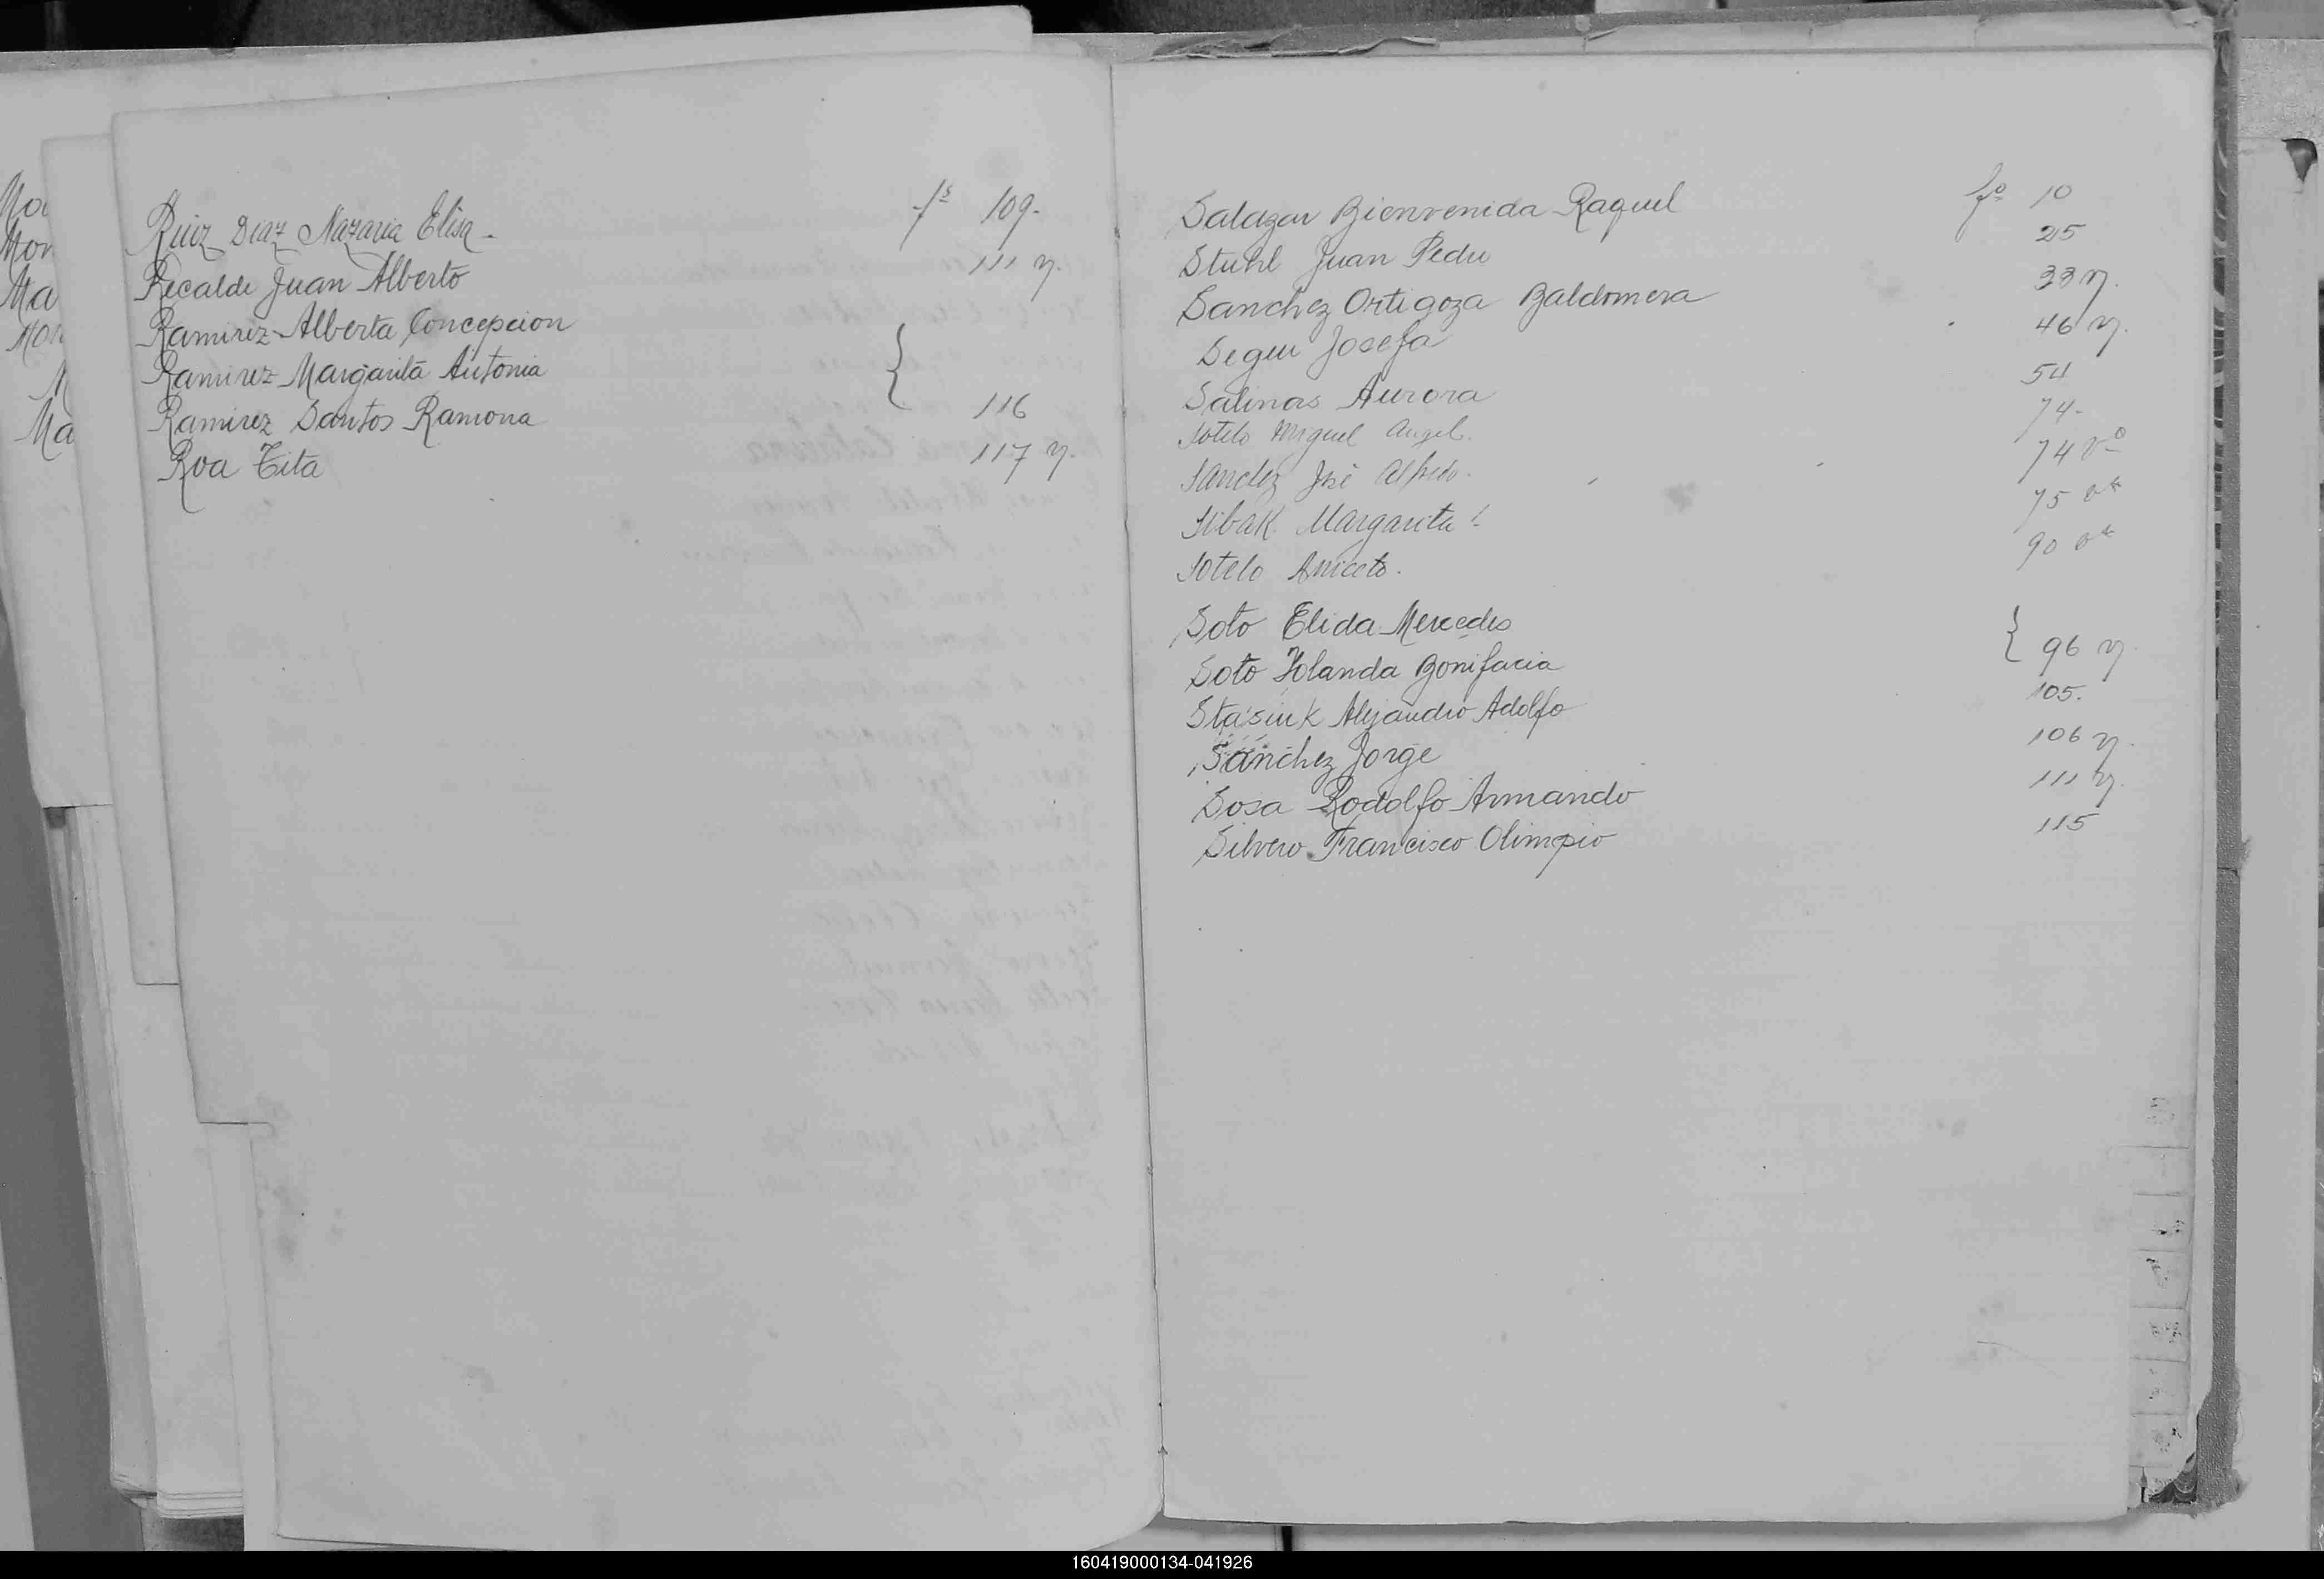 Ruiz Diaz Nazaria Elisa - fs 109.
Recalde Juan Alberto 111 v.
Ramirez Alberta Concepcion
Ramirez Margarita Antonia
Ramirez Santos Ramona } 116
Roa Tita 117 v.
Salazar Bienvenida Raquel fº 10
Stuhl Juan Pedro 25
Sanchez Ortigoza Baldomera 33 v.
Seguu Josefa 46 v.
Salinas Aurora 54
Sotelo Miguel Angel. 74-
Sanchez José Alfredo. 74 vº
Sibak Margarita 75 v
Sotelo Aniceto. 90 v
Soto Elida Mercedes
Soto Yolanda Bonifacia } 96 v
Stasiuk Alejandro Adolfo 105.
Sanchez Jorge 106 v.
Sosa Rodolfo Armando 111 v.
Silvero Francisco Olimpio 115
160419000134-041926